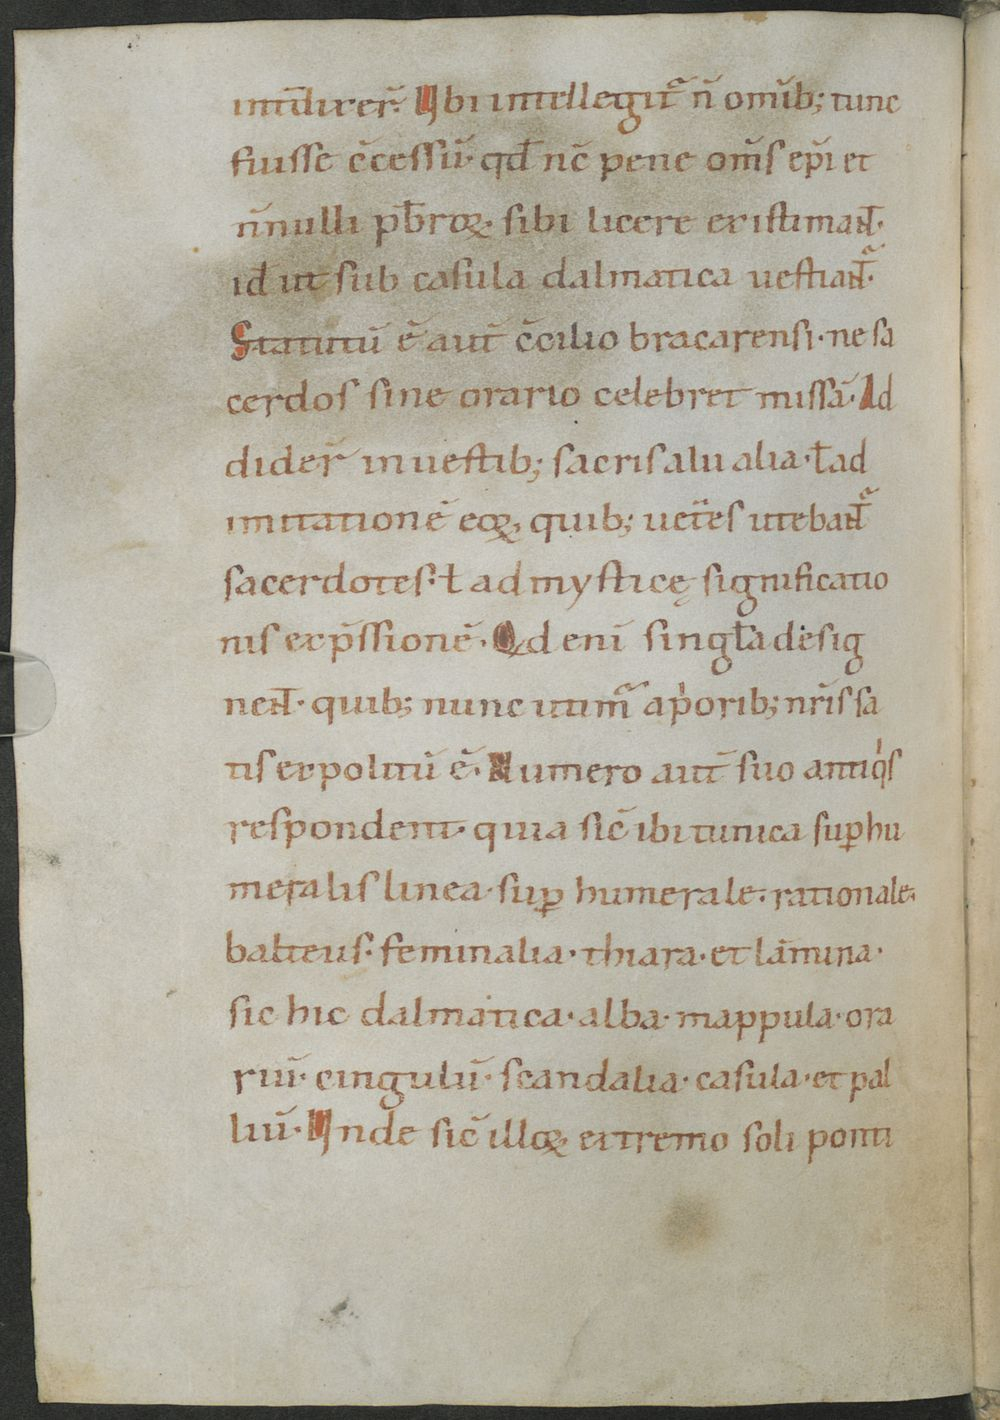 intd̄ixer̄. Ubi intellegit᷑ n̄ omīb; tunc
fuisse c̄cessū. qd̄ nc̄ pene om̄s ep̄i et
n̄nulli p̄brꝝ. sibi licere existimant̄.
id ut sub casula dalmatica uestiant᷑.
Statutū ē aut̄ c̄cilio bracarensi. ne sa
cerdos sine orario celebret missā. Ad
dider̄ in uestib; sacris alii alia. ł ad
imitationē eoꝝ, quib; uet̄es utebant᷑
sacerdotes. ł ad mysticę significatio
nis exp̄ssionē. Qd enī singl̄a desig
nent. quib; nunc utim᷑ a priorib; nr̄is sa
tis expolitū ē. Numero aut̄ suo antiqͥs
respondent. quia sic̄ ibi tunica suꝑhu
meralis linea. suꝑ humerale. rationale.
balteus. feminalia. thiara. et lamina.
sic hic dalmatica. alba. mappula. ora
riū. cingulū. scandalia. casula. et pal
liū. Unde sic̄ illoꝝ extremo soli ponti